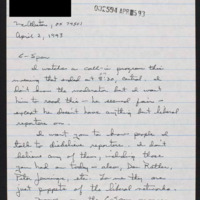 DOC594 APR 8 93
April 2, 1993
C-Span
I watched a call-in program this
morning that ended at 8:30, Central. I
don't know the moderator but I want
him to read this — he seemed fair —
except he doesn't have anything but liberal
reporters on.
I want you to know people I
talk to disbelieve reporters. I don't
believe any of them, including those
you had on today - also, Dan Rather,
Peter Jennings, etc. To me they are
just puppets of the liberal networks.